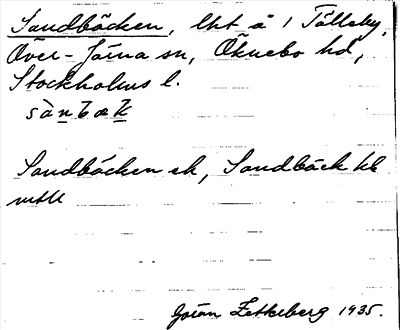 Sandbäcken, lht å 1 Tälleby,
Över-Järna sn, Öknebo hd,
Stockholms l.
sànbæk
Sandbäcken ek, Sandbäck kb
mtll
Göran Zetterberg 1935.